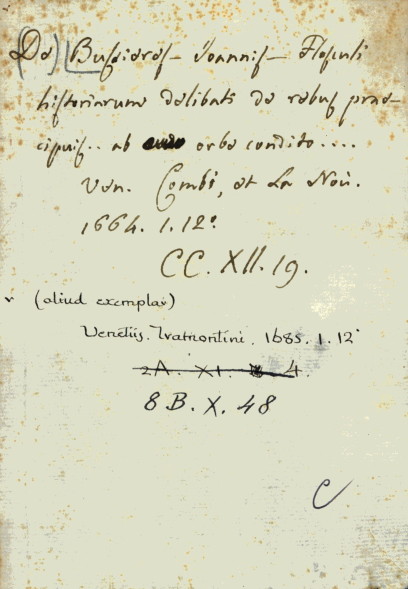 (De) Bussieres - Joannis - Flosculi
historiarum delibati de rebus prae-
cipuis.. ab orbe condito....
Ven. Combi, et La Noù.
1664. 1. 12º
CC. XII. 19.
(aliud exemplar)
Venetiis. Tramontini. 1685. 1. 12º
2A. XI. 4.
8 B. X. 48
C